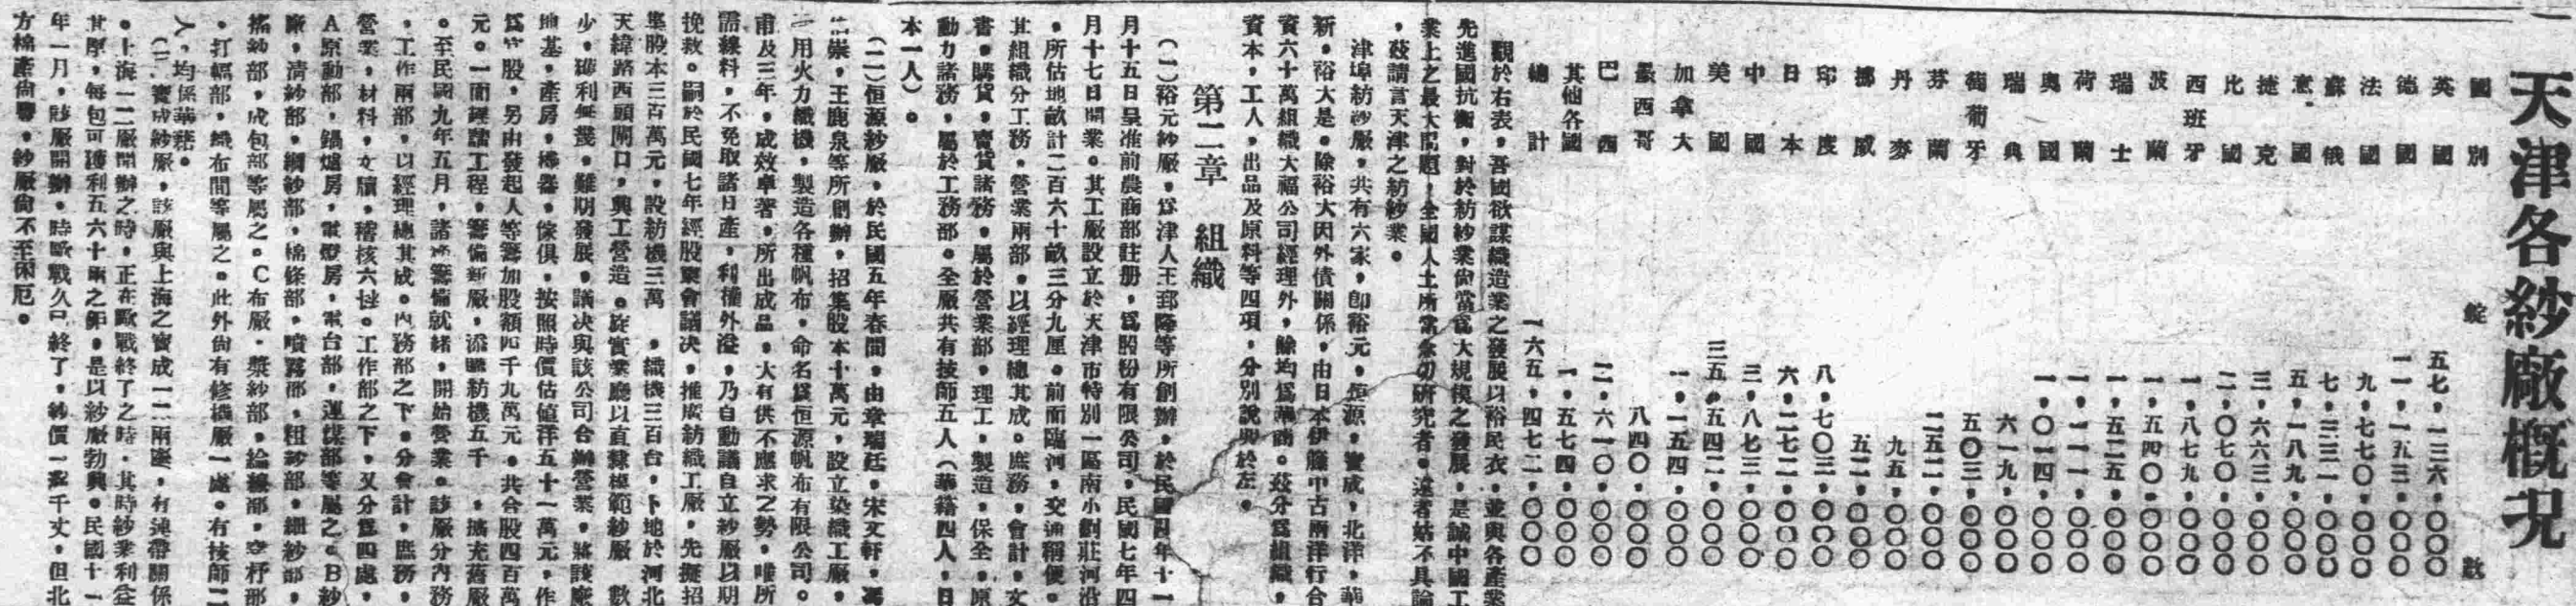 天津各紗廠概況
國別　錠數
英國　五七・一三六・〇〇〇
德國　一一・一五三・〇〇〇
法國　九・七七〇・〇〇〇
蘇俄　七・三三一・〇〇〇
意國　五・一八九・〇〇〇
捷克　三・六六三・〇〇〇
比國　二・〇七〇・〇〇〇
西班牙　一・八七九・〇〇〇
波蘭　一・五四〇・〇〇〇
瑞士　一・五二五・〇〇〇
荷蘭　一・一一一・〇〇〇
奧國　一・〇一四・〇〇〇
瑞典　六一九・〇〇〇
葡萄牙　五〇三・〇〇〇
芬蘭　二五二・〇〇〇
丹麥　九五・〇〇〇
挪威　五二・〇〇〇
印度　八・七〇三・〇〇〇
日本　六・二七二・〇〇〇
中國　三・八七三・〇〇〇
美國　三五・五四二・〇〇〇
加拿大　一・一五四・〇〇〇
墨西哥　八四〇・〇〇〇
巴西　二・六一〇・〇〇〇
其他各國　一・五七四・〇〇〇
總計　一六五・四七二・〇〇〇
觀於右表，吾國欲謀織造業之發展以裕民衣，並與各產業
先進國抗衡，對於紡紗業尙當爲大規模之發展，是誠中國工
業上之最大問題，全國人士所當急切研究者。遠者姑不具論
，茲請言天津之紡紗業。
津埠紡紗廠，共有六家，卽裕元，恒源，寶成，北洋，華
新，裕大是。除裕大因外債關係，由日本伊藤中古兩洋行合
資六十萬組織大福公司經理外，餘均爲華商。茲分爲組織，
資本，工人，出品及原料等四項，分別說明於左。
第二章　組織
（一）裕元紗廠，爲津人王郅隆等所創辦，於民國四年十一
月十五日呈准前農商部註册，爲股份有限公司，民國七年四
月十七日開業。其工廠設立於天津市特別一區南小劉莊河沿
，所佔地畝計二百六十畝三分九厘。前面臨河，交通稱便。
其組織分工務，營業兩部。以經理總其成。庶務，會計，文
書，購貨，賣貨諸務，屬於營業部，理工，製造，保全，原
動力諸務，屬於工務部。全廠共有技師五人（華籍四人，日
本一人）。
（二）恒源紗廠，於民國五年春間，由章瑞廷，宋文軒，馮
崇，王鹿泉等所創辦，招集股本十萬元，設立染織工廠，
用火力織機，製造各種帆布，命名爲恒源帆布有限公司。
甫及三年，成效卓著，所出成品，大有供不應求之勢，唯所
需線料，不免取諸日產，利權外溢，乃自動議自立紗廠以期
挽救。嗣於民國七年經股東會議决，推廣紡織工廠，先擬招
集股本三百萬元，設紡機三萬　，織機三百台，卜地於河北
天緯路西頭閘口，興工營造。旋實業廳以直隸模範紗廠　數
少，獲利無幾，難期發展，議决與該公司合辦營業，將該廠
地基，產房，機器，傢俱，按照時價估値洋五十一萬元，作
爲官股，另由發起人等籌加股額四千九萬元。共合股四百萬
元。一面經諸工程，籌備新廠，添購紡機五千　，擴充舊廠
。至民國九年五月，諸　籌備就緒，開始營業。該廠分內務
，工作兩部，以經理總其成。內務部之下，分會計，庶務，
營業，材料，文牘，稽核六　。工作部之下，又分爲四處，
A原動部，鍋爐房，電燈房，電台部，運煤部等屬之。B紗
廠，清紗部，綱紗部，棉條部，噴霧部，粗紗部，細紗部，
搖紗部，成包部等屬之。C布廠，漿紗部，綸線部，空杼部
，打幅部，織布間等屬之。此外尙有修機廠一處。有技師二
人，均係華籍。
（三）寶成紗廠，該廠與上海之寶成一二兩廠，有連帶關係
。上海一二廠開辦之時，正在歐戰終了之時，其時紗業利益
甚厚，每包可獲利五六十兩之鉅，是以紗廠勃興。民國十一
年一月，該廠開辦，時歐戰久已終了，紗價一落千丈，但北
方棉產尙豐，紗廠尙不至困厄。